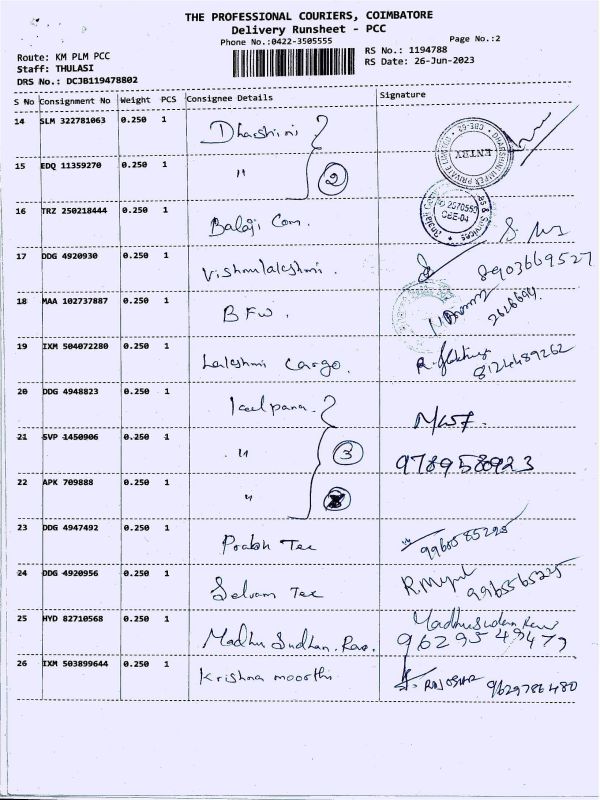 THE PROFESSIONAL COURIERS, COIMBATORE
Delivery Runsheet - PCC
Phone No.:0422-3505555
Page No.:2
Route: KM PLM PCC
RS No.: 1194788
Staff: THULASI
RS Date: 26-Jun-2023
DRS No.: DCJB119478802
S No Consignment No Weight PCS Consignee Details Signature
14 SLM 322781063 0.250 1 Dharshini
15 EDQ 11359270 0.250 1 " 2
ENTRY
16 TRZ 250218444 0.250 1 Balaji Com.
17 DDG 4920930 0.250 1 Vishnulakshmi. 8903669527
18 MAA 102737887 0.250 1 BFW.
19 IXM 504072280 0.250 1 Lakshmi Cargo. 8124489262
20 DDG 4948823 0.250 1 Kalpana.
21 SVP 1450906 0.250 1 " 3 9789580923
22 APK 709888 0.250 1 "
23 DDG 4947492 0.250 1 Prabh Tex
24 DDG 4920956 0.250 1 Selvam Tex
25 HYD 82710568 0.250 1 Madhu Sudhan. Rao. Madhusudan Rao
9629549479
26 IXM 503899644 0.250 1 Krishna moorthi 9629786480